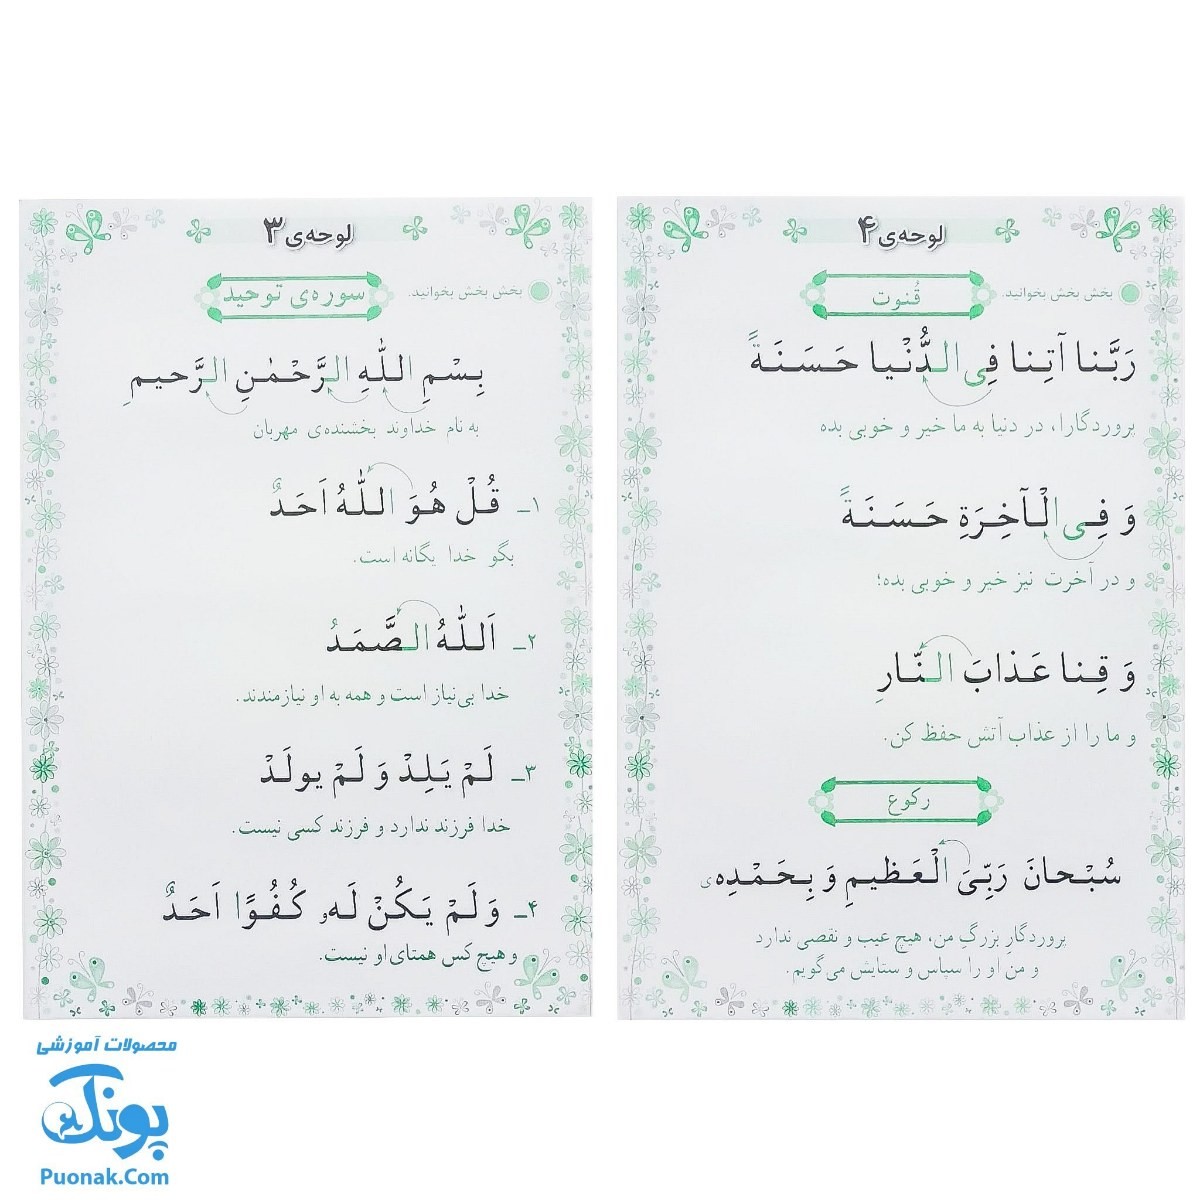 لوحه‌ی ۴
بخش بخش بخوانید.
قُنوت
رَبَّنا آتِنا فِی الدُّنْیا حَسَنَةً
پروردگارا، در دنیا به ما خیر و خوبی بده
وَ فِی الْآخِرَةِ حَسَنَةً
و در آخرت نیز خیر و خوبی بده؛
وَ قِنا عَذابَ النّارِ
و ما را از عذاب آتش حفظ کن.
رکوع
سُبْحانَ رَبِّیَ الْعَظیمِ وَ بِحَمْدِهی
پروردگارِ بزرگِ من، هیچ عیب و نقصی ندارد
و من او را سپاس و ستایش می‌گویم.
لوحه‌ی ۳
بخش بخش بخوانید.
سوره‌ی توحید
بِسْمِ اللّٰهِ الرَّحْمٰنِ الرَّحیمِ
به نام خداوند بخشنده‌ی مهربان
۱ـ قُلْ هُوَ اللّٰهُ اَحَدٌ
بگو خدا یگانه است.
۲ـ اَللّٰهُ الصَّمَدُ
خدا بی‌نیاز است و همه به او نیازمندند.
۳ـ لَمْ یَلِدْ وَ لَمْ یولَدْ
خدا فرزند ندارد و فرزند کسی نیست.
۴ـ وَ لَمْ یَکُنْ لَهو کُفُوًا اَحَدٌ
و هیچ کس همتای او نیست.
محصولات آموزشی
پونک
Puonak.Com